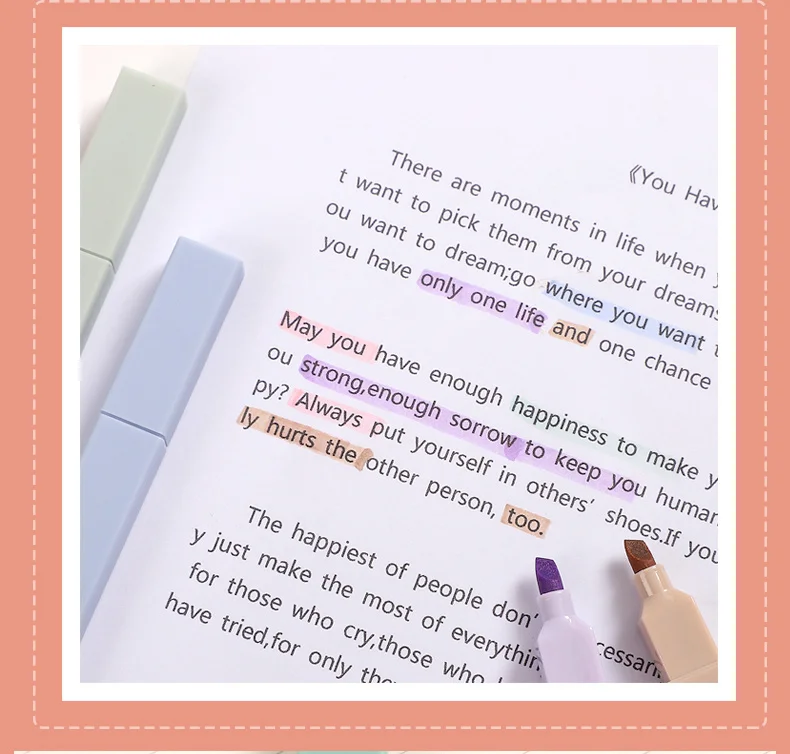 《You Hav
There are moments in life when y
t want to pick them from your dreams
ou want to dream;go where you want t
you have only one life and one chance
May you have enough happiness to make y
ou strong,enough sorrow to keep you human
py? Always put yourself in others' shoes.If you
ly hurts the other person, too.
The happiest of people don'
y just make the most of everythin
for those who cry,those who
have tried,for only the